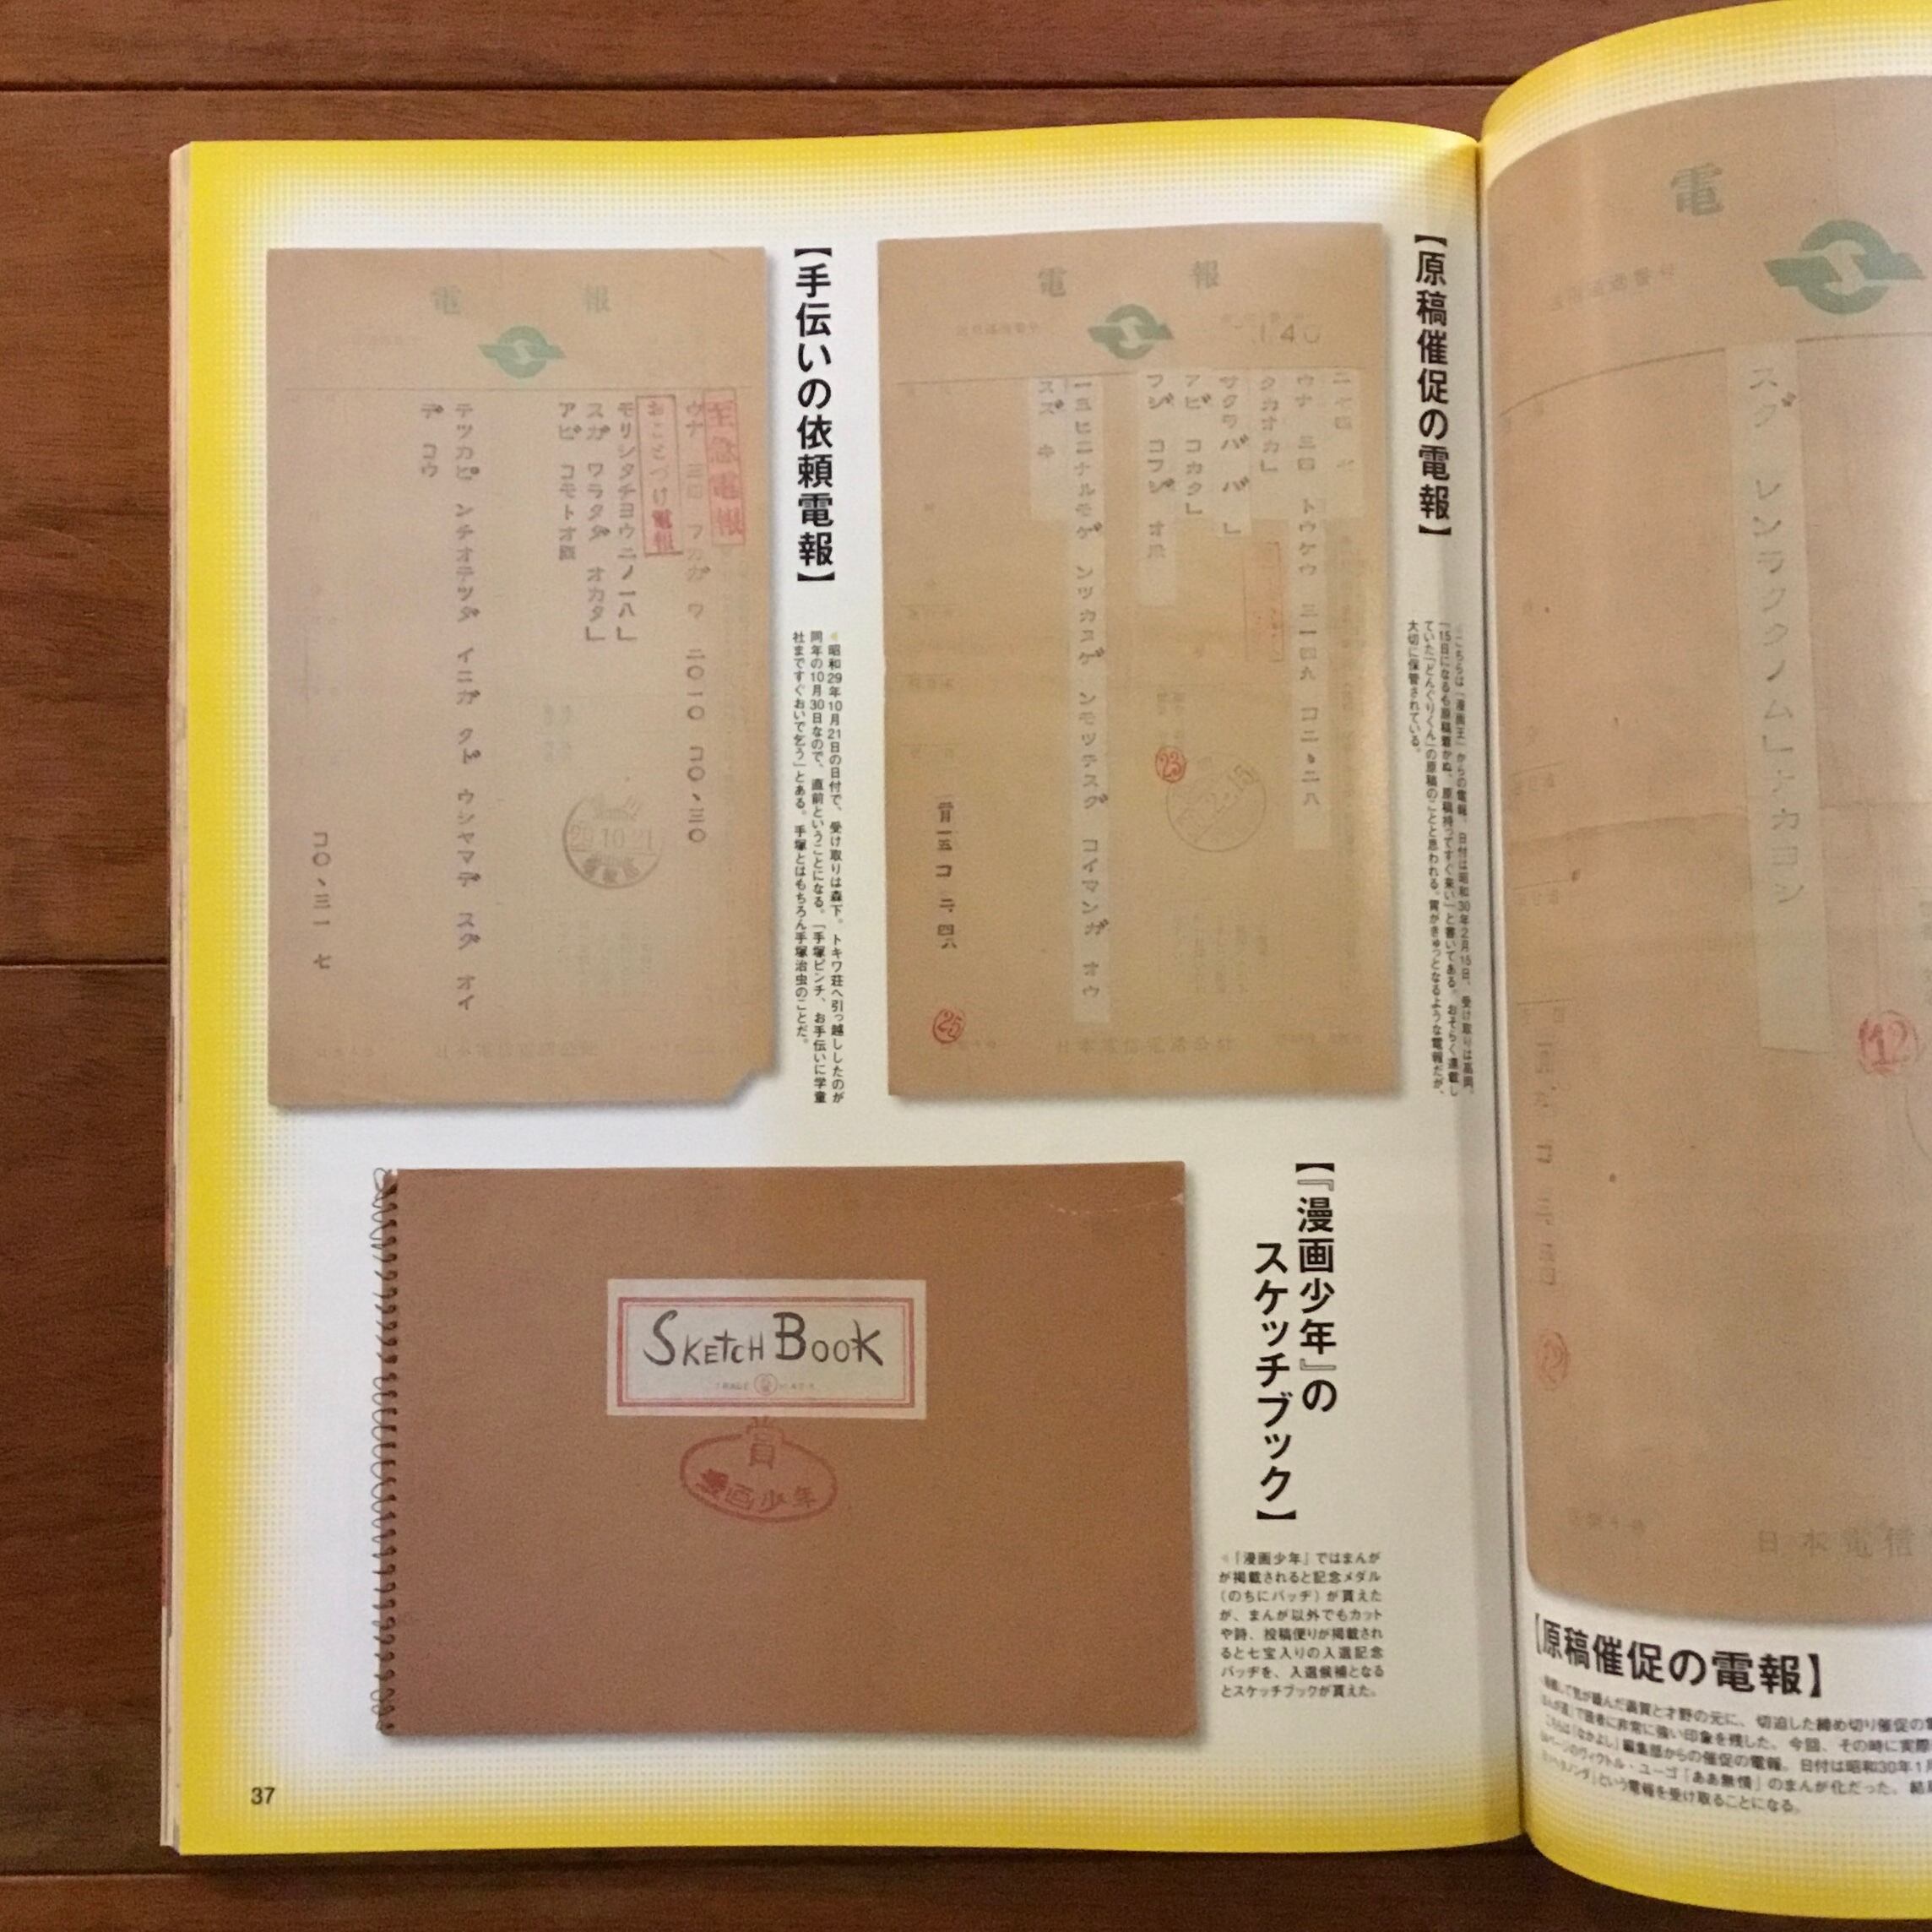 【原稿催促の電報】
こちらは『漫画王』からの電報。日付は昭和30年2月15日、受け取りは高岡。
「15日になるも原稿着かぬ、原稿持ってすぐ来い」と書いてある。おそらく連載し
ていた『どんぐりくん』の原稿のことと思われる。胃がきゅっとなるような電報だが、
大切に保管されている。
電報
140
ウナ 三四 トウケウ 三一四九 コ二、二八
タカオカ」
サクラババ」
アビ コカタ」
フジ コフジ オ
スズキ
23
25
【手伝いの依頼電報】
昭和29年10月21日の日付で、受け取りは森下。トキワ荘へ引っ越ししたのが
同年の10月30日なので、直前ということになる。「手塚ピンチ、お手伝いに学童
社まですぐおいで乞う」とある。手塚とはもちろん手塚治虫のことだ。
電報
至急電報
おことづけ電報
モリシタチヨウ二ノ一八」
スガ ワラタダ オカタ」
アビ コモトオ
テツカピ ンチオテツダ イニガ クド ウシヤマデ スグ オイ
デ コウ
コ〇、三一 七
29.10.21
【『漫画少年』の
スケッチブック】
『漫画少年』ではまんが
が掲載されると記念メダル
（のちにバッヂ）が貰えた
が、まんが以外でもカット
や詩、投稿便りが掲載され
ると七宝入りの入選記念
バッヂを、入選候補となる
とスケッチブックが貰えた。
SKETCH BOOK
賞
漫画少年
37
電
スグ レンラククノム」ナカヨシ
12
日本電信
【原稿催促の電報】
して気が緩んだ満賀と才野の元に、切迫した締め切り催促の電
で読者に非常に強い印象を残した。今回、その時に実際
こちらは『なかよし』編集部からの催促の電報。日付は昭和30年1月
ページのヴィクトル・ユーゴ『ああ無情』のまんが化だった。結
という電報を受け取ることになる。